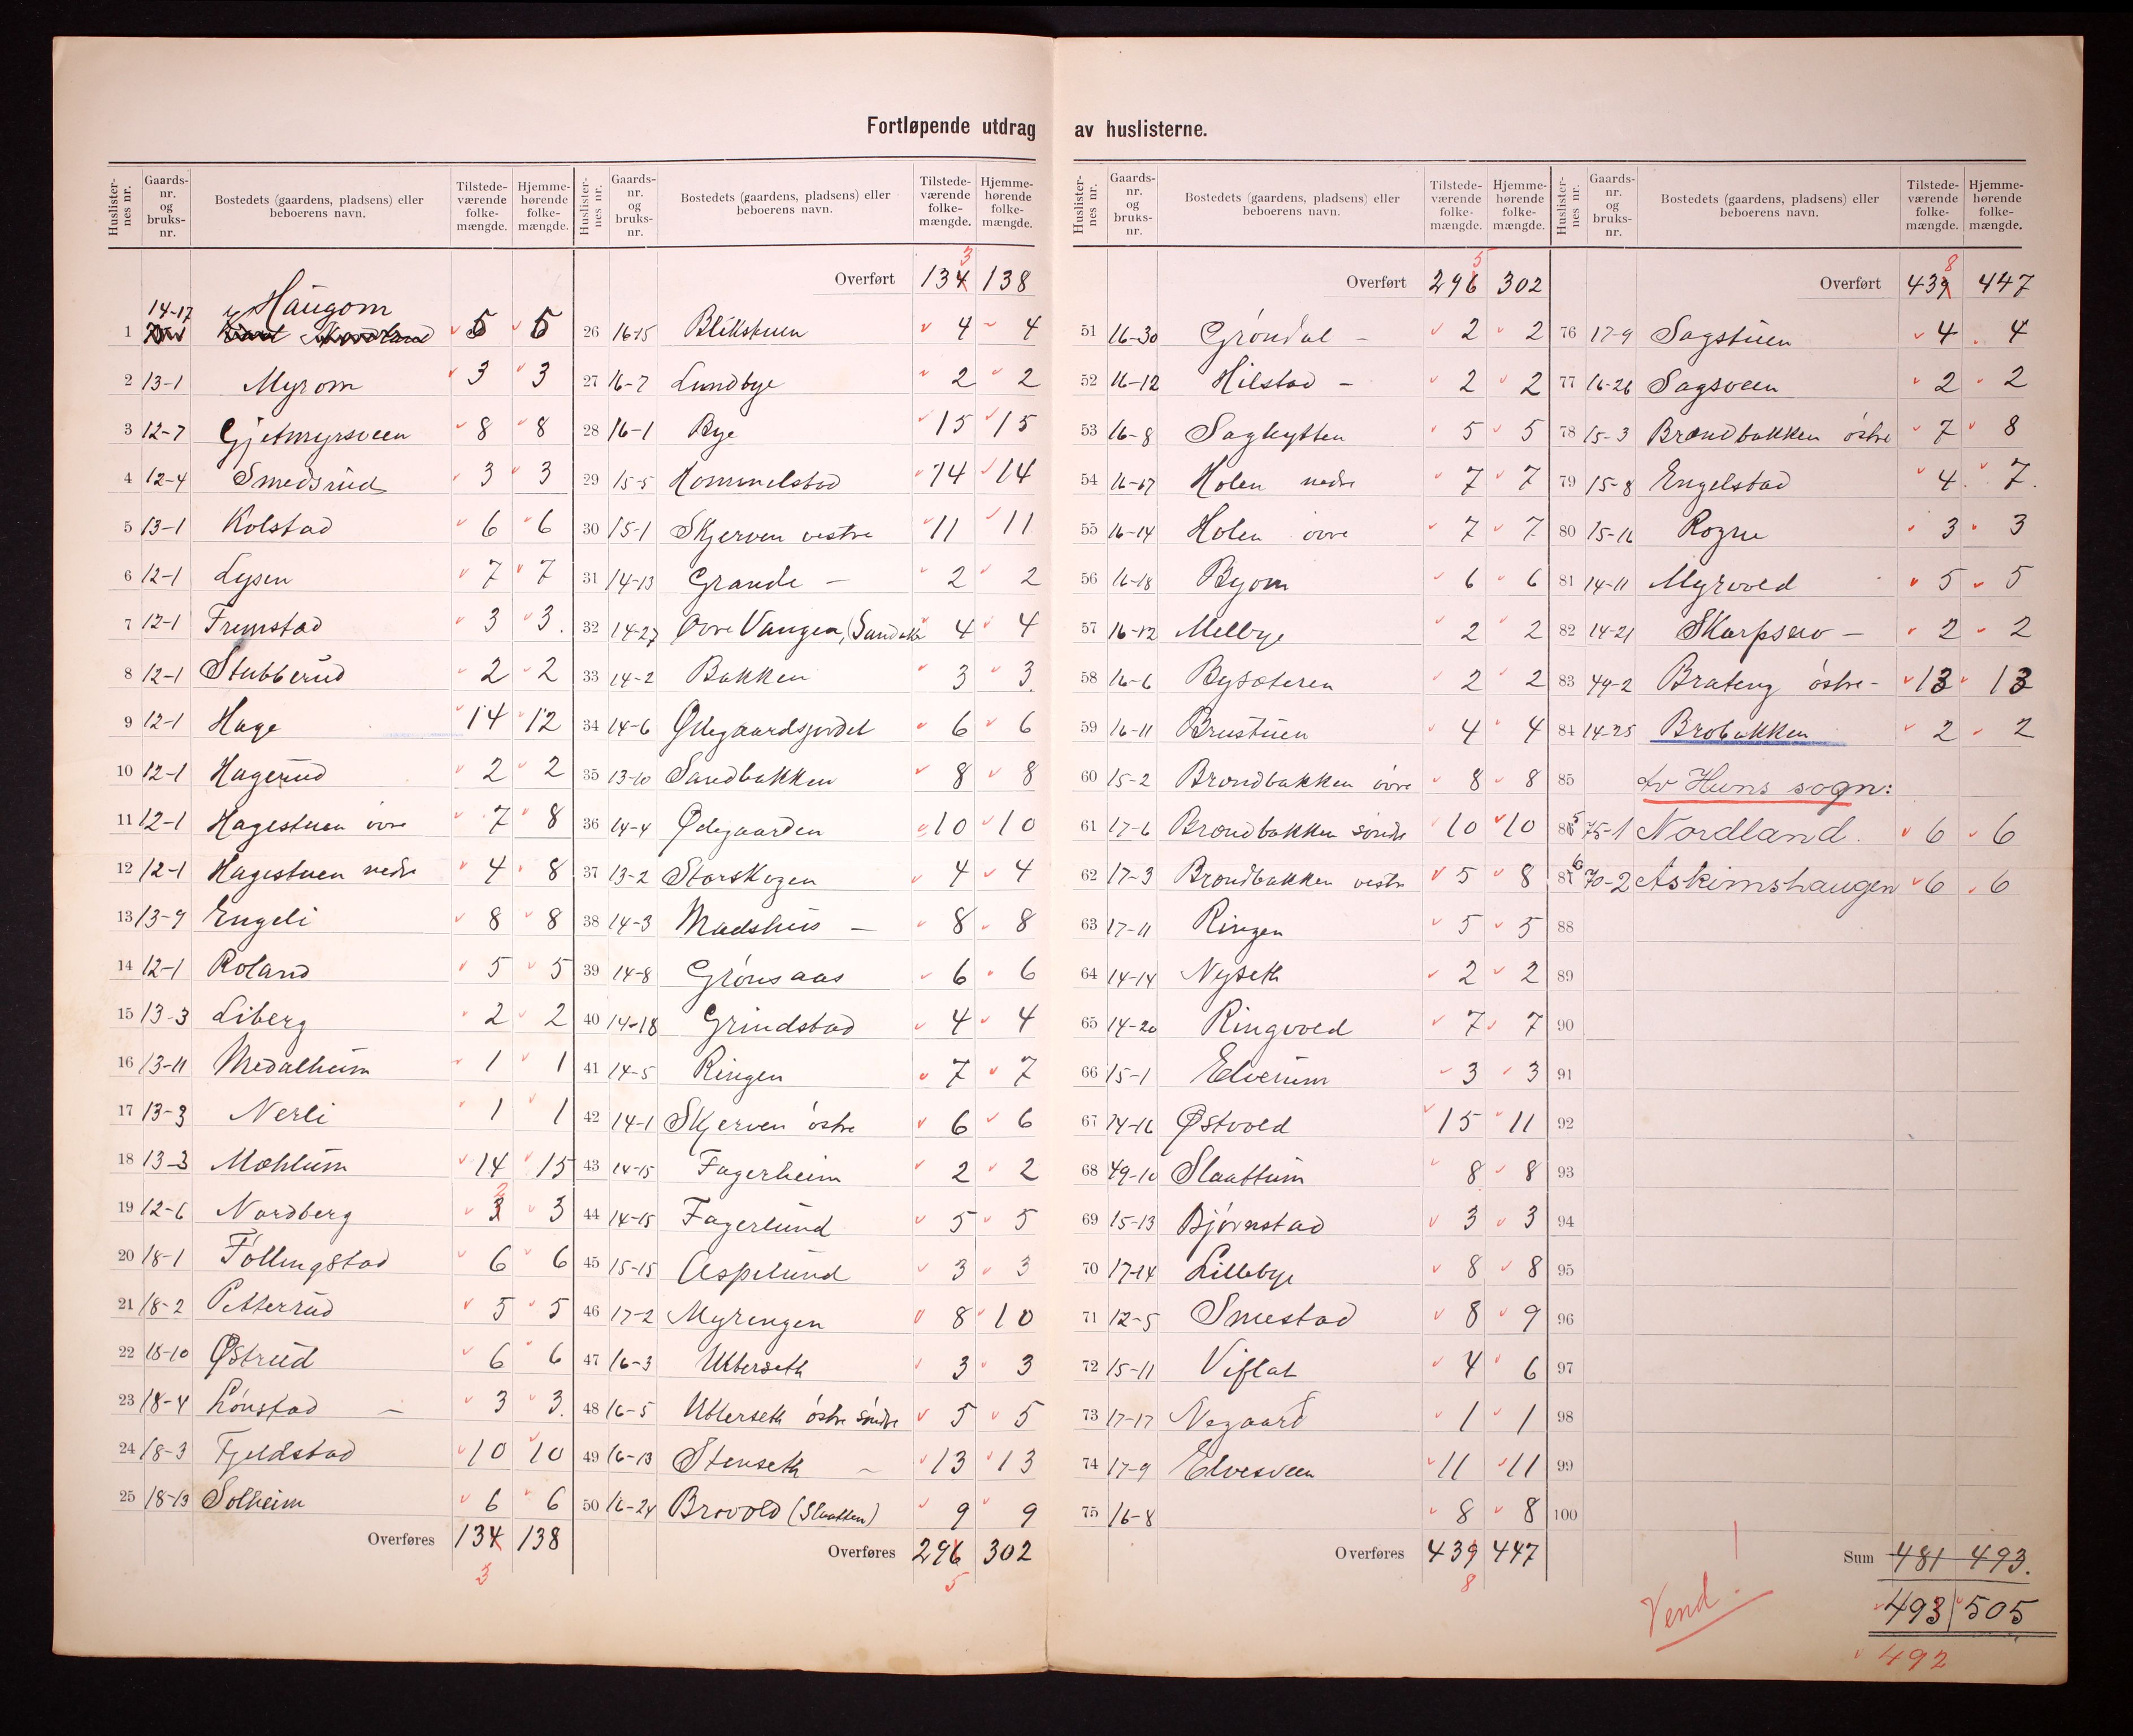 Fortløpende utdrag av huslisterne.
Huslisternes nr. Gaards-nr. og bruks-nr. Bostedets (gaardens, pladsens) eller beboerens navn. Tilstedeværende folkemængde. Hjemmehørende folkemængde.
14-17 Haugom
1 5 5
2 13-1 Myrom 3 3
3 12-7 Gjetmyrsveen 8 8
4 12-4 Smedsrud 3 3
5 13-1 Kolstad 6 6
6 12-1 Lysen 7 7
7 12-1 Fremstad 3 3.
8 12-1 Stubberud 2 2
9 12-1 Hage 14 12
10 12-1 Hagerud 2 2
11 12-1 Hagestuen øvre 7 8
12 12-1 Hagestuen nedre 4 8
13 13-9 Engeli 8 8
14 12-1 Roland 5 5
15 13-3 Liberg 2 2
16 13-11 Medalheim 1 1
17 13-3 Nerli 1 1
18 13-3 Mæhlum 14 15
19 12-6 Nordberg 3 2 3
20 18-1 Follingstad 6 6
21 18-2 Petterrud 5 5
22 18-10 Østrud 6 6
23 18-4 Lønstad – 3 3.
24 18-3 Fjeldstad 10 10
25 18-13 Solheim 6 6
Overføres 134 138
3
Huslisternes nr. Gaards-nr. og bruks-nr. Bostedets (gaardens, pladsens) eller beboerens navn. Tilstedeværende folkemængde. Hjemmehørende folkemængde.
3
Overført 134 138
26 16-15 Blikstuen 4 4
27 16-7 Lundbye 2 2
28 16-1 Bye 15 15
29 15-5 Hommelstad 14 14
30 15-1 Skjerven vestre 11 11
31 14-13 Grande – 2 2
32 14-27 Øvre Vangen, (Sandakk 4 4
33 14-2 Bakken 3 3.
34 14-6 Ødegaardsjordet 6 6
35 13-10 Sandbakken 8 8
36 14-4 Ødegaarden 10 10
37 13-2 Storskogen 4 4
38 14-3 Madshus – 8 8
39 14-8 Grønsaas 6 6
40 14-18 Grindstad 4 4
41 14-5 Ringen 7 7
42 14-1 Skjerven østre 6 6
43 14-15 Fagerheim 2 2
44 14-15 Fagerlund 5 5
45 15-15 Aspelund 3 3
46 17-2 Myrengen 8 10
47 16-3 Ulberseth 3 3
48 16-5 Ulberseth østre søndre 5 5
49 16-13 Stenseth – 13 13
50 16-24 Brovold (Slaatten) 9 9
Overføres 296 302
5
Huslisternes nr. Gaards-nr. og bruks-nr. Bostedets (gaardens, pladsens) eller beboerens navn. Tilstedeværende folkemængde. Hjemmehørende folkemængde.
5
Overført 296 302
51 16-30 Grøndal – 2 2
52 16-12 Hilstad – 2 2
53 16-8 Saghytten 5 5
54 16-17 Holen nedre 7 7
55 16-14 Holen øvre 7 7
56 16-18 Byom 6 6
57 16-12 Melbye 2 2
58 16-6 Bysæteren 2 2
59 16-11 Brustuen 4 4
60 15-2 Brændbakken øvre 8 8
61 17-6 Brændbakken søndre 10 10
62 17-3 Brændbakken vestre 5 8
63 17-11 Ringen 5 5
64 14-14 Nyseth 2 2
65 14-20 Ringvold 7 7
66 15-1 Elverum 3 3
67 14-16 Østvold 15 11
68 49-10 Slaattum 8 8
69 15-13 Bjørnstad 3 3
70 17-14 Lillebye 8 8
71 12-5 Smestad 8 9
72 15-11 Viflat 4 6
73 17-17 Nygaard 1 1
74 17-9 Elvesveen 11 11
75 16-8 8 8
Overføres 439 447
8
Huslisternes nr. Gaards-nr. og bruks-nr. Bostedets (gaardens, pladsens) eller beboerens navn. Tilstedeværende folkemængde. Hjemmehørende folkemængde.
8
Overført 439 447
76 17-9 Sagstuen 4 4
77 16-26 Sagsveen 2 2
78 15-3 Brændbakken østre 7 8
79 15-8 Engelstad 4. 7.
80 15-16 Rogne 3 3
81 14-11 Myrvold 5 5
82 14-21 Skarpsno – 2 2
83 49-2 Brateng østre – 13 13
84 14-25 Brobakken 2 2
85 Av Huns sogn:
86 5 75-1 Nordland. 6 6
87 6 70-2 Askimshaugen 6 6
88
89
90
91
92
93
94
95
96
97
98
99
100
Sum 481 493.
493 505
492
Vend.